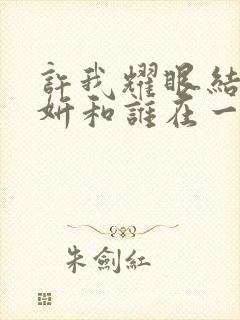 許我耀眼結
妍和誰在一
朱劍紅